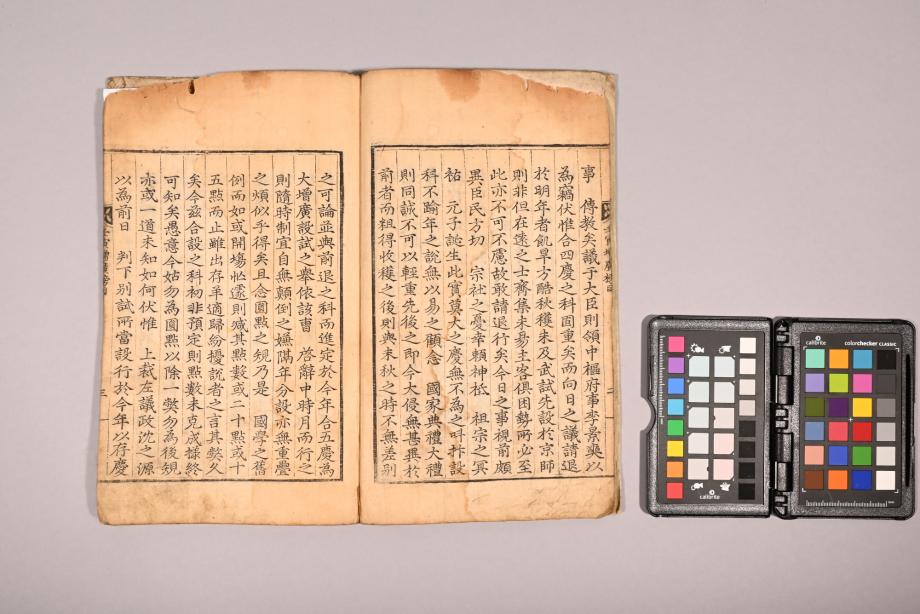 事　傳教矣議于大臣則領中樞府事李景奭以
為竊伏惟合四慶之科固重矣而向日之議請退
於明年者飢旱方酷秋穫未及武試先設於京師
則非但在遠之士齊集未易主客俱困勢所必至
此亦不可不慮故敢請退行矣今日之事視前頗
異臣民方切　宗社之憂幸賴神祗　祖宗之冥
祐　元子誕生此實莫大之慶無不為之呌抃設
科不踰年之說無以易之顧念　國家典禮大禮
則同誠不可以輕重先後之即今大侵無甚異於
前者而粗得收穫之後則與來秋之時不無差別
之可論並與前退之科而進定於今年合五慶為
大增廣設試之舉依該曺　啓辭中時月而行之
則隨時制宜自無顛倒之嫌隔年分設亦無重疊
之煩似乎得矣且念圓點之規乃是　國學之舊
例而如或開場忙遽則減其點數或二十點或十
五點而止雖出存羊適歸紛擾說者之言其弊久
矣今玆合設之科初非預定則點數未克成據終
可知矣愚意今姑勿為圓點以除一弊勿為後規
亦或一道未知如何伏惟　上裁左議政沈之源
以為前日　判下別試所當設行於今年以行慶
壬寅增廣榜目
二
三
calibrite
colorchecker CLASSIC
calibrite